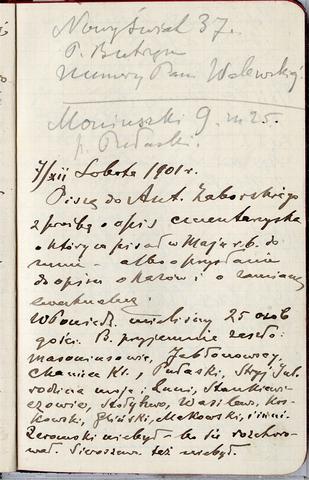 Nowy Świat 37.
P. Butrym
numery Pani Walewskiej.
Moniuszki 9. m 25.
p. Pułaski.
7/XII Sobota 1901 r.
Piszę do Ant. Zaborskiego
z prośbą o opis cmentarzyska
o którym pisał w Maju r.b. do
mnie – albo o przysłanie
do opisu okazów i o zamianę
ewentualną.
W Poniedz. mieliśmy 25 osób
gości. B. przyjemnie zeszło:
Jabłonowscy,
Pułaski, Stryj Jul.
rodzina moja i Zuni, Stankiewi-
czowie, Wasilew, Kos-
kowski, Gliński, Makowski, i inni.
Żeromski nie był – bo się rozchoro-
wał. Sieroszew. też nie był.